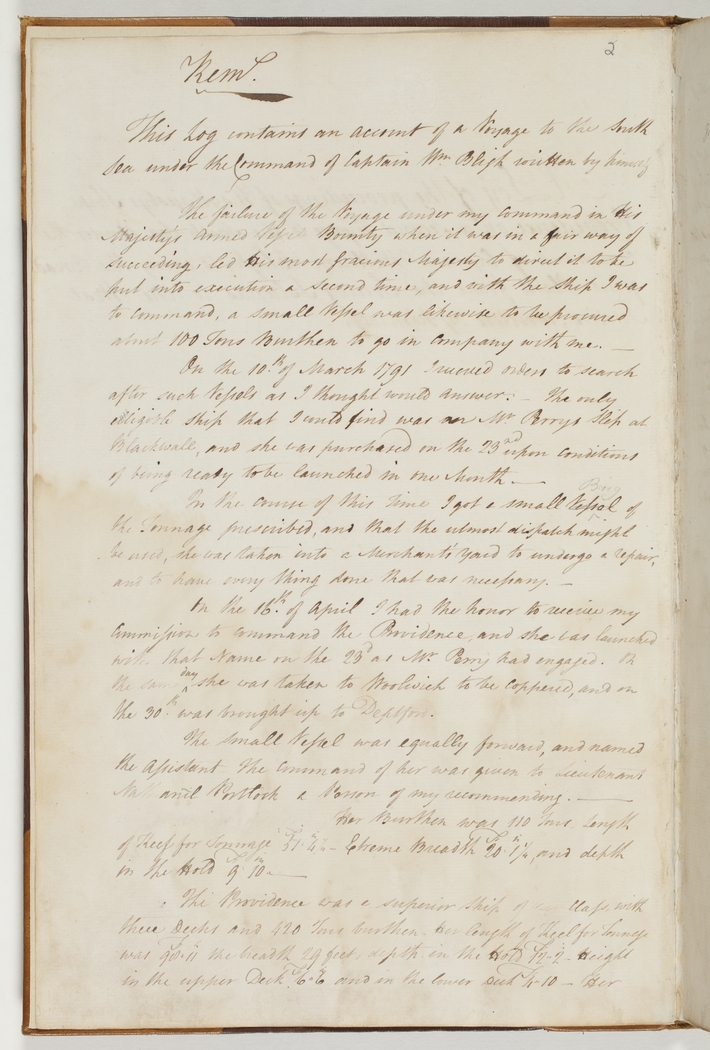 2
Rem.
This Log contains an account of a Voyage to the South
Sea under the Command of Captain Wm Bligh written by himself
The failure of the Voyage under my command in His
Majestys Armed Vessel Bounty when it was in a fair way of
succeeding, led His most Gracious Majesty to direct it to be
put into execution a second time, and with the Ship I was
to command, a small Vessel was likewise to be procured
about 100 Tons Burthen to go in company with me. —
On the 10th of March 1791 I recieved orders to search
after such Vessels as I thought would answer. — The only
elligible ship that I could find was on Mr Perrys Slip at
Blackwall, and she was purchased on the 23rd upon conditions
of being ready to be launched in one Month. —
Brig
In the course of this Time I got a small Vessel of
the Tonnage prescribed, and that the utmost dispatch might
be used, she was taken into a Merchants Yard to undergo a repair,
and to have every thing done that was necessary. —
On the 16th of April I had the honor to receive my
Commission to command the Providence, and she was launched
with that Name on the 23d as Mr Perry had engaged. On
the same day she was taken to Woolwich to be Coppered, and on
the 30th was brought up to Deptford.
The small Vessel was equally forward, and named
the Assistant. The Command of her was given to Lieutenant
Nathaniel Portlock a Person of my recommending. —
Her Burthen was 110 Tons. Length
of Keel for Tonnage 51.. — Extreme Breadth 20.. and depth
in the Hold 9 Ft 10 In —
The Providence was a superior Ship of class, with
three Decks and 420 Tons burthen. Her length of Keel for Tonnage
was 98.11 the breadth 29 feet, depth in the Hold 12-2 - Height
in the upper Deck 6-6 and in the lower Deck - 10 — Her